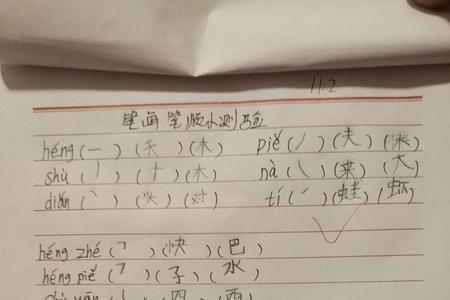 11.2
笔画笔顺小测验
héng (一) (天) (木) piě (丿) (夫) (来)
shù (丨) (十) (木) nà (㇏) (来) (大)
diǎn (丶) (头) (对) tí (㇀) (蛙) (虾)
héng zhé (𠃍) (快) (巴)
héng piě (㇇) (子) (水)
(四) (西)